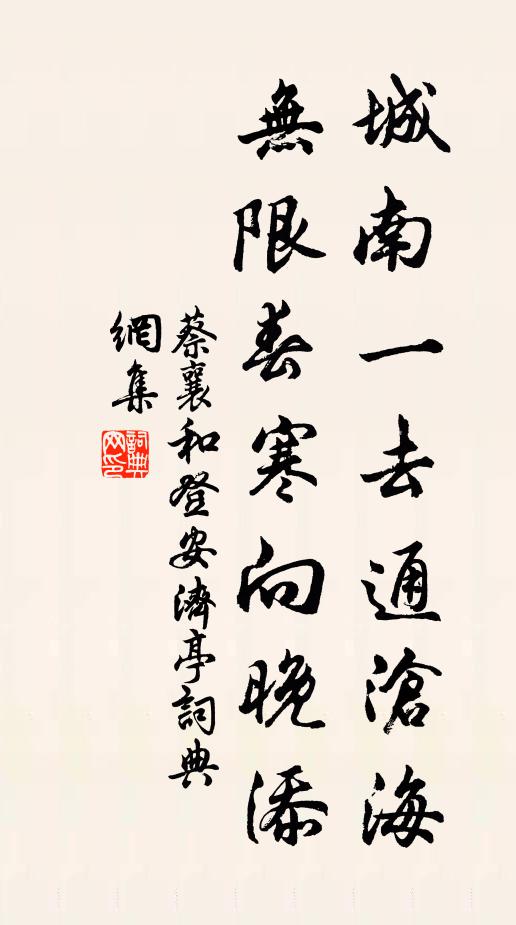 城南一去通滄海
無限春寒向晚添
蔡襄和登安濟亭詞典
網集
詞典網印